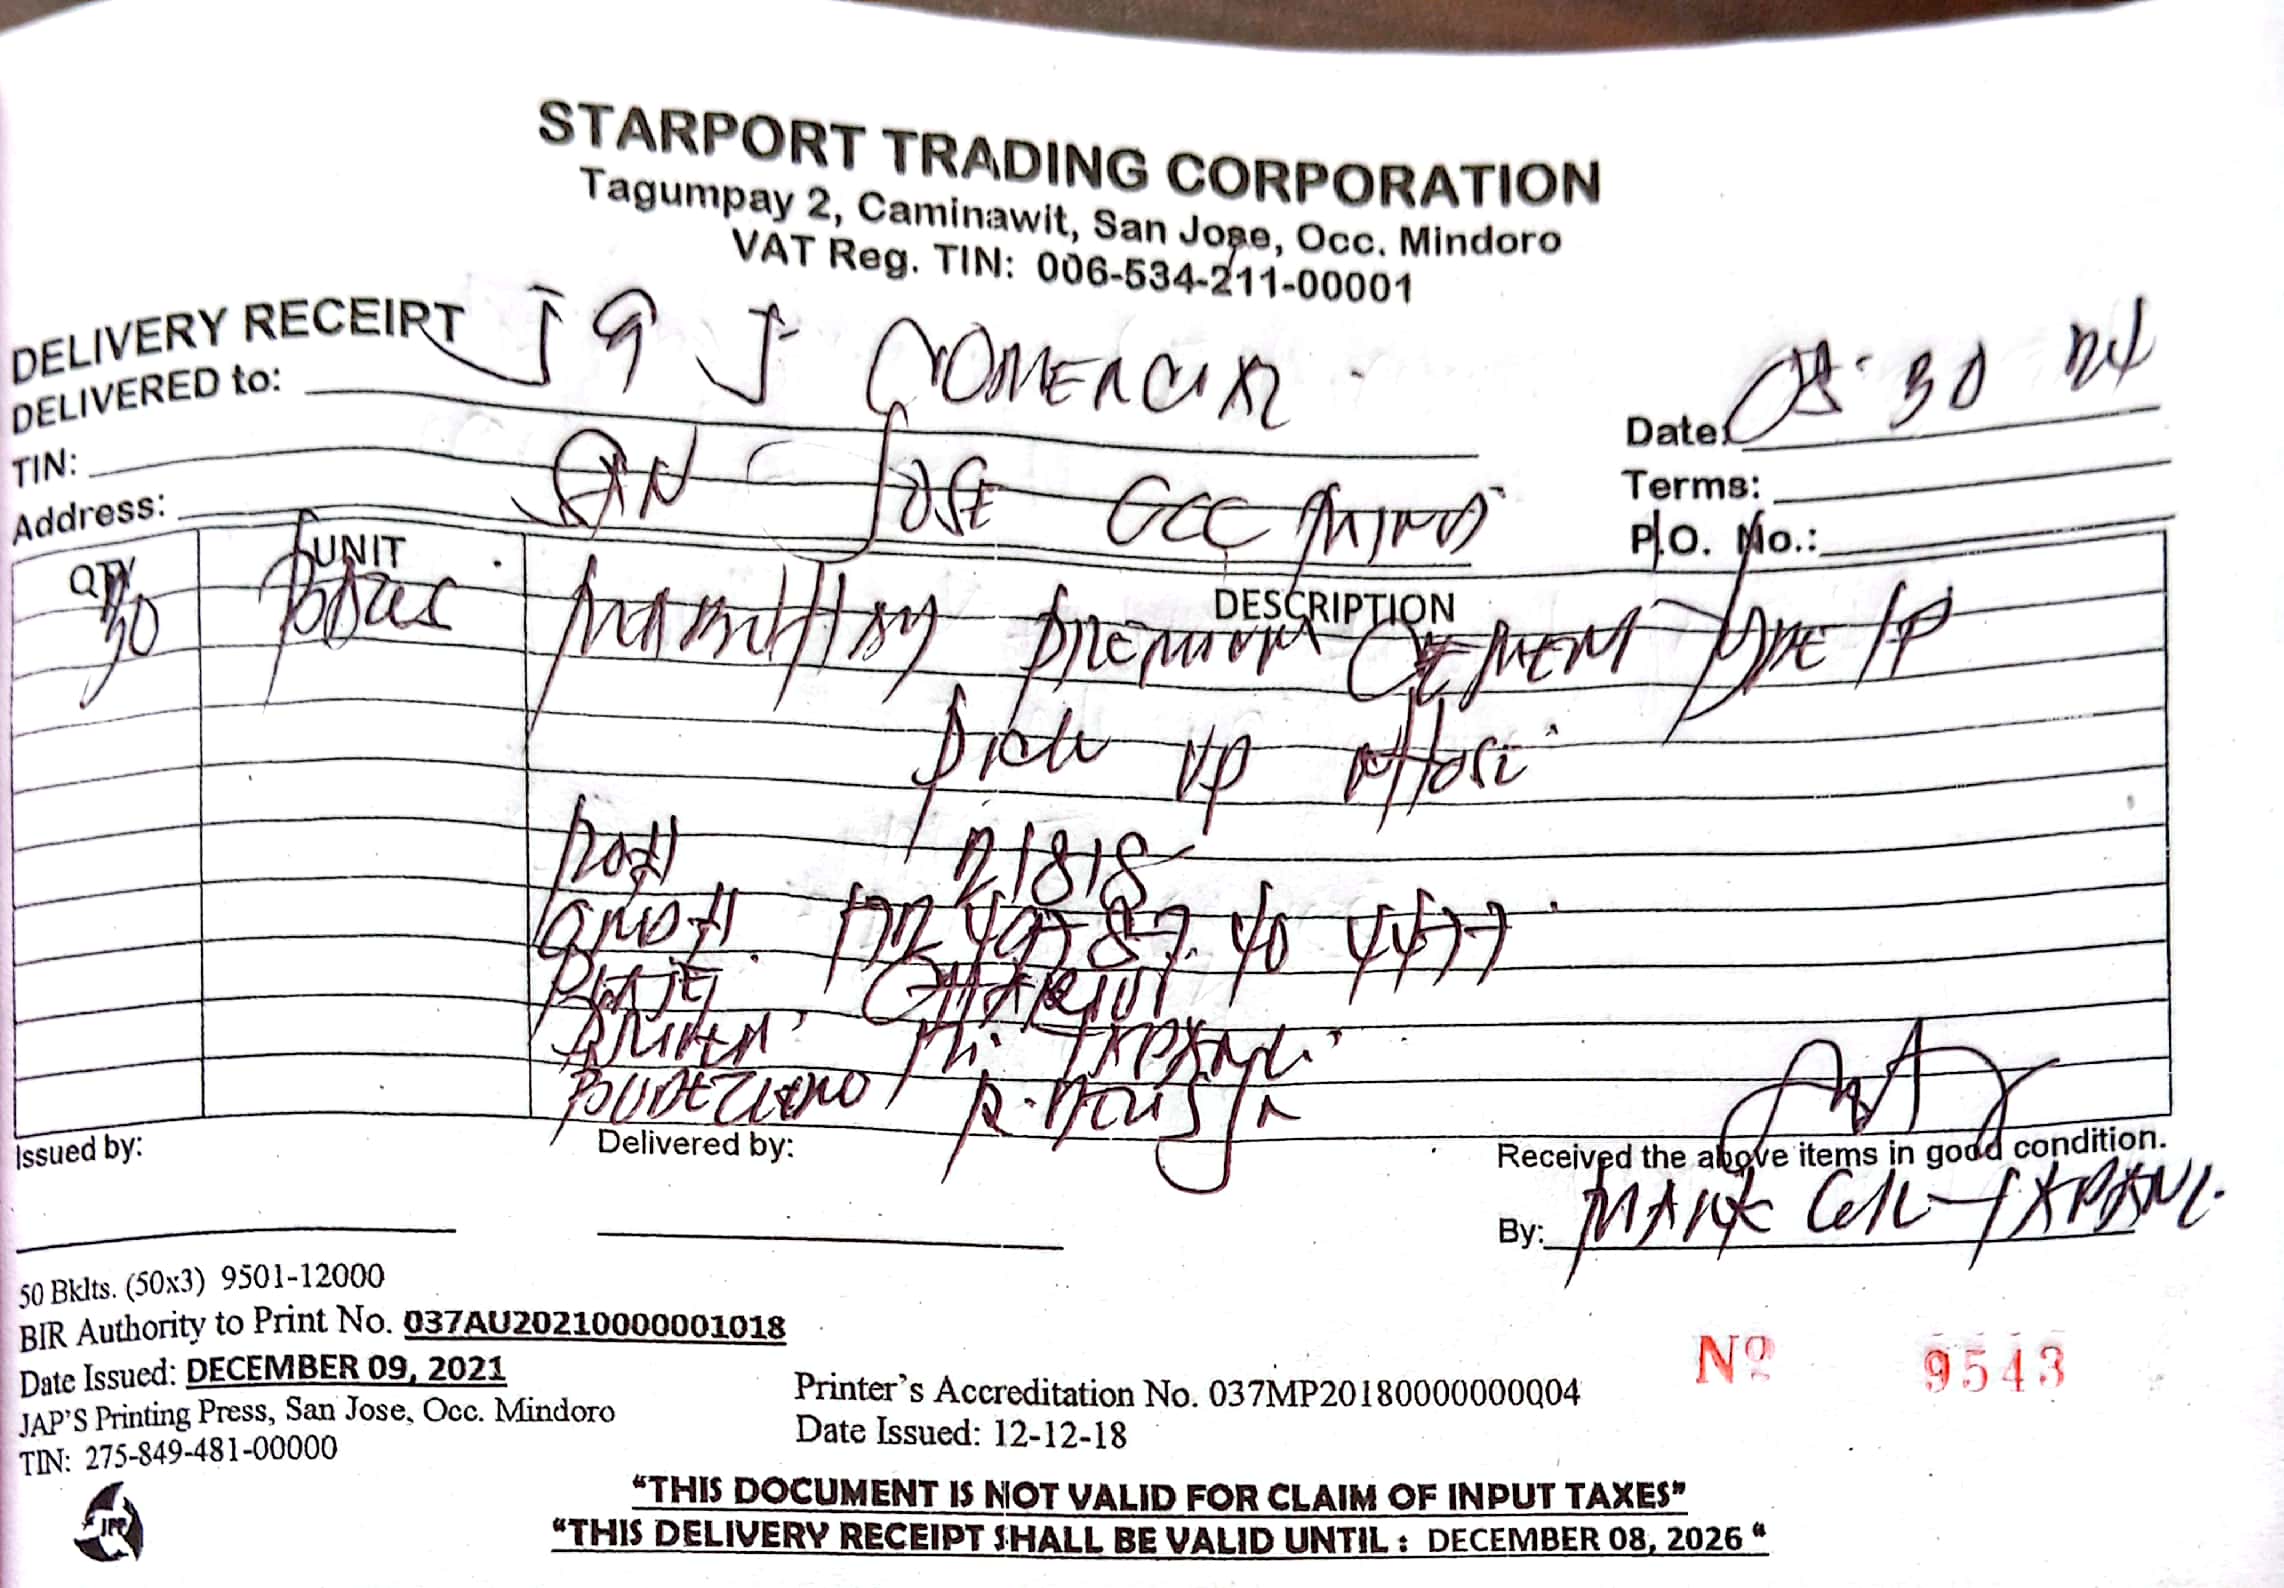 STARPORT TRADING CORPORATION
Tagumpay 2, Caminawit, San Jose, Occ. Mindoro
VAT Reg. TIN: 006-534-211-00001
DELIVERY RECEIPT
DELIVERED to: J J COMERCIAL
Date: 30 24
TIN:
Terms:
Address: SAN JOSE OCC MINDO
P.O. No.:
QTY UNIT DESCRIPTION
30 PREMIUM CEMENT TYPE 1P
Pick UP
21818
CHARIOT
DRIVER M.
R.
Issued by:
Delivered by:
Received the above items in good condition.
By: MARK
50 Bklts. (50x3) 9501-12000
BIR Authority to Print No. 037AU20210000001018
Date Issued: DECEMBER 09, 2021
JAP'S Printing Press, San Jose, Occ. Mindoro
TIN: 275-849-481-00000
Printer's Accreditation No. 037MP20180000000004
Date Issued: 12-12-18
Nº 9543
"THIS DOCUMENT IS NOT VALID FOR CLAIM OF INPUT TAXES"
"THIS DELIVERY RECEIPT SHALL BE VALID UNTIL : DECEMBER 08, 2026 "